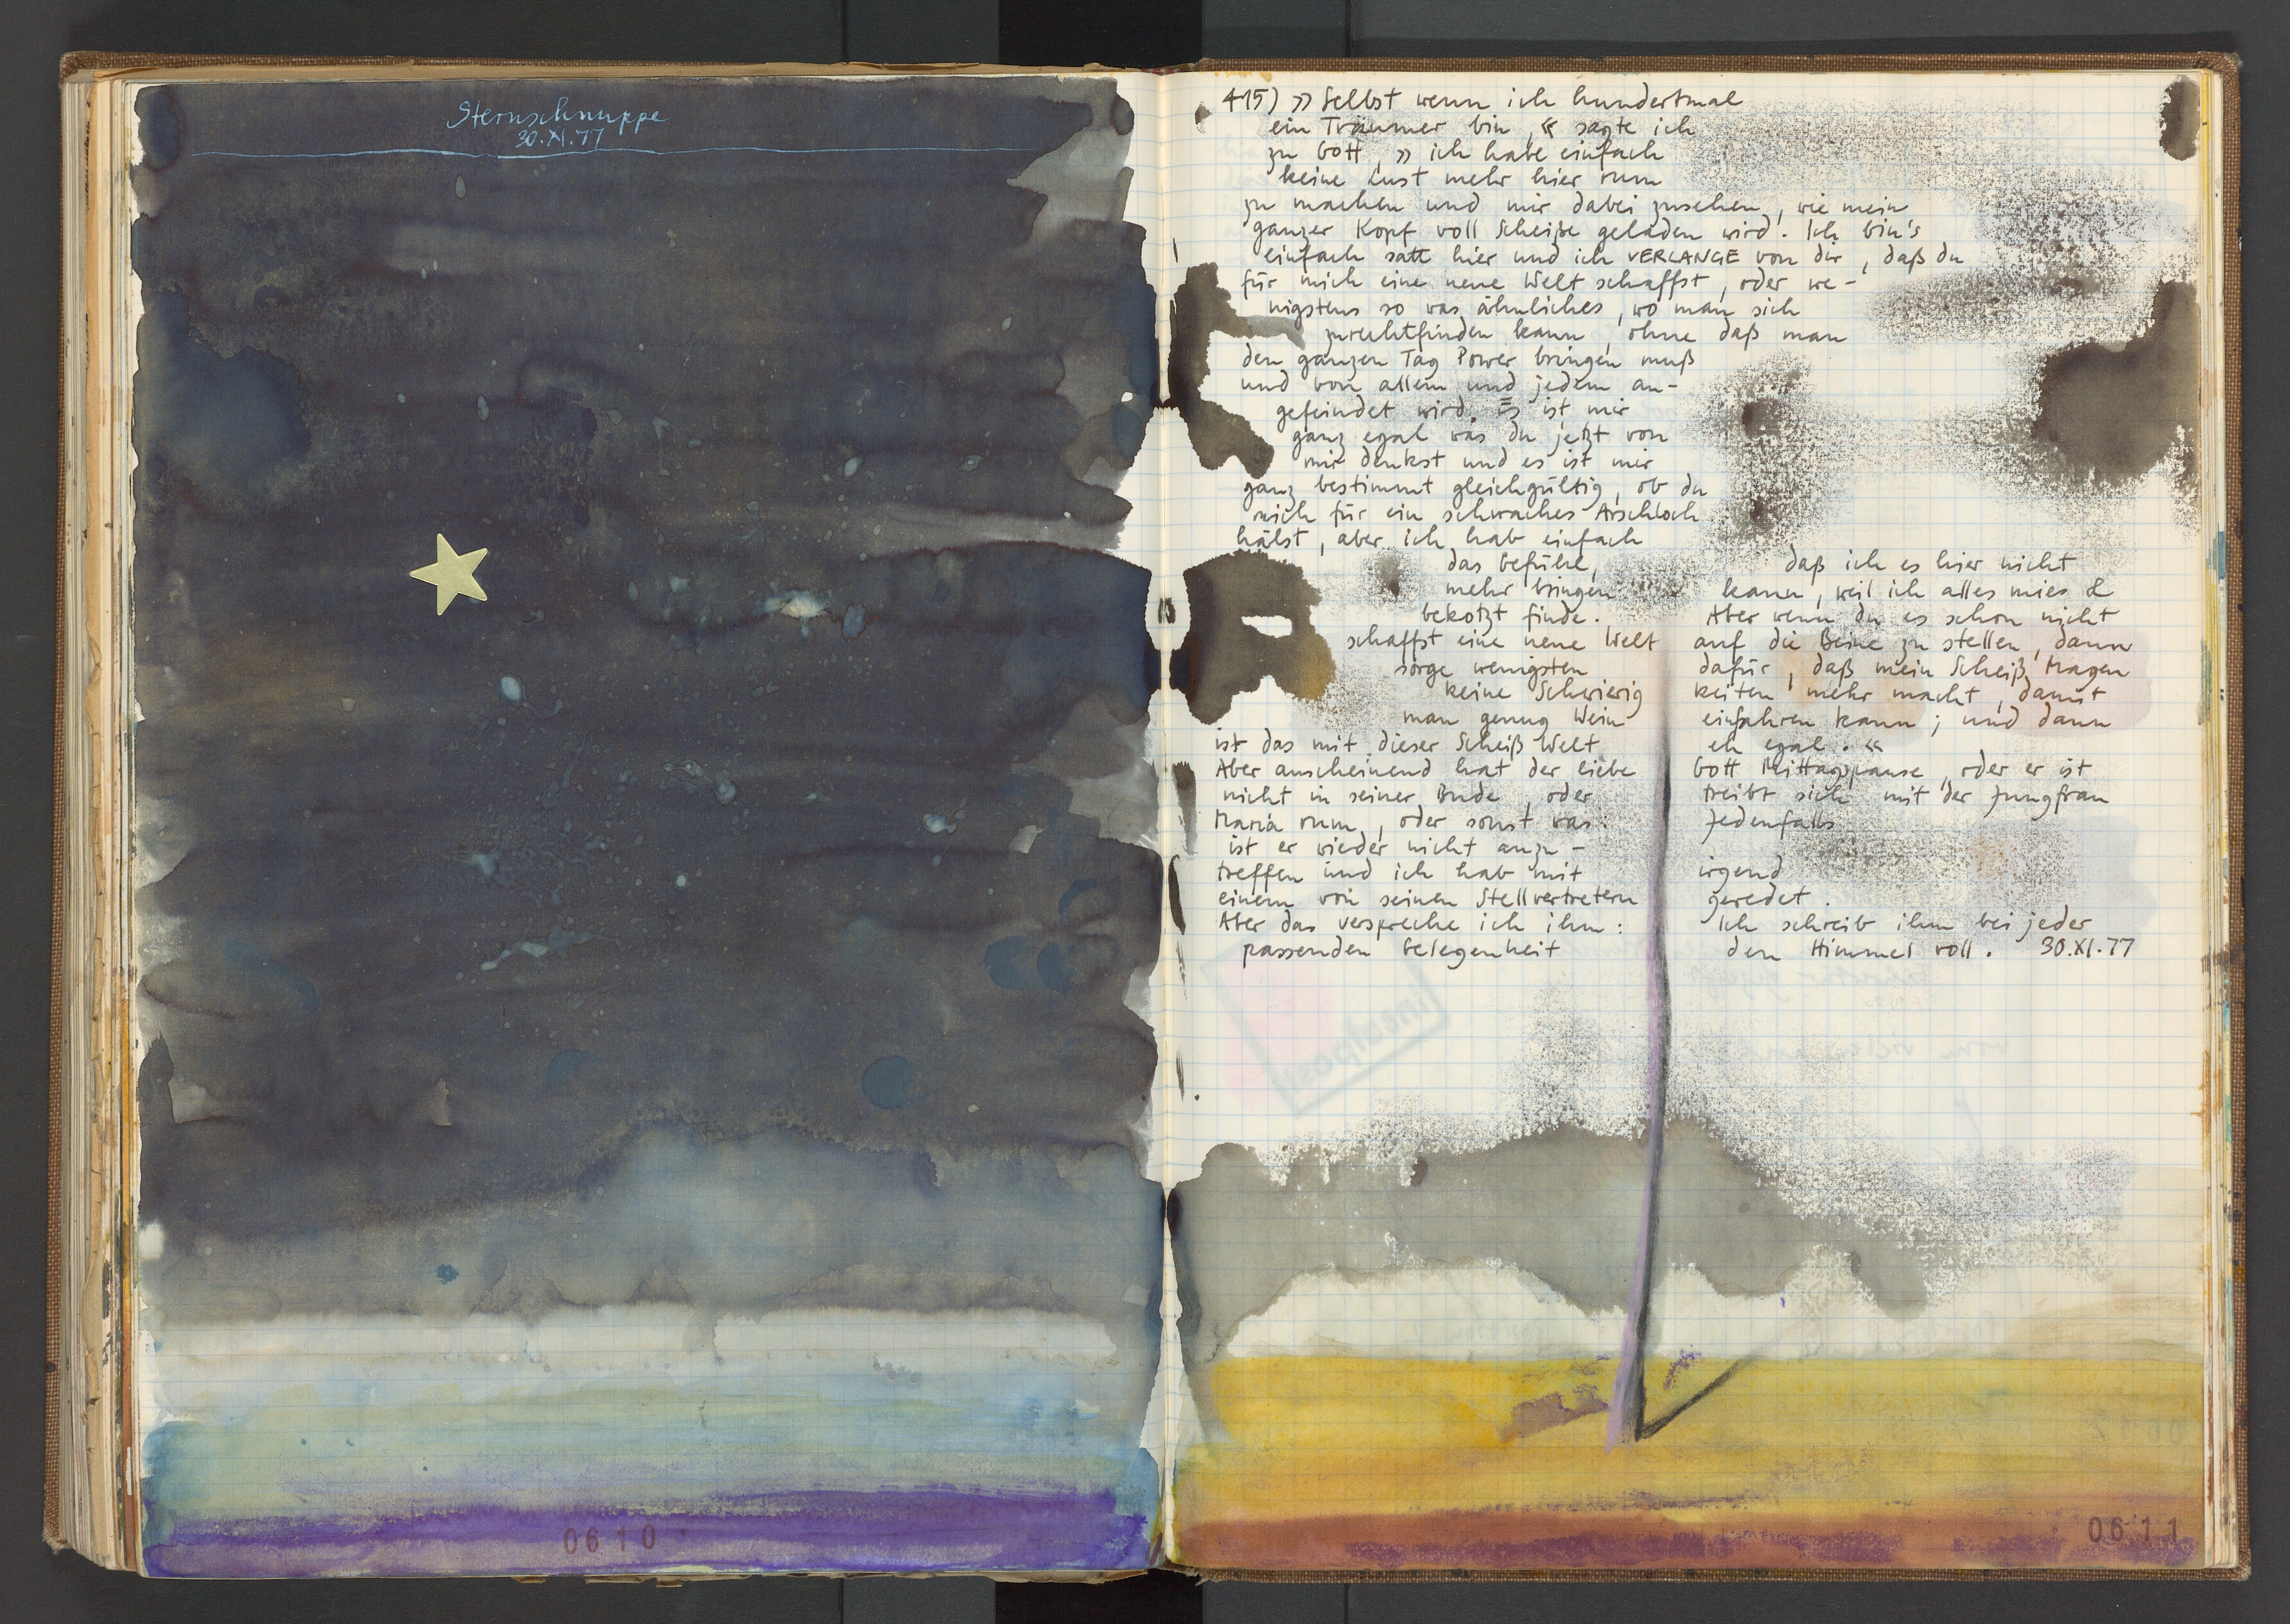 Sternschnuppe
30.XI.77
415) »Selbst wenn ich hundertmal
ein Träumer bin,« sagte ich
zu Gott, »ich habe einfach
keine Lust mehr hier rum
zu machen und mir dabei zusehen, wie mein
ganzer Kopf voll Scheiße geladen wird. Ich bin's
einfach satt hier und ich VERLANGE von dir, daß du
für mich eine neue Welt schaffst, oder we-
nigstens so was ähnliches, wo man sich
zurechtfinden kann, ohne daß man
den ganzen Tag Power bringen muß
und von allem und jedem an-
gefeindet wird. Es ist mir
ganz egal was du jetzt von
mir denkst und es ist mir
ganz bestimmt gleichgültig, ob du
mich für ein schwaches Arschloch
hälst, aber ich hab einfach
das Gefühl, daß ich es hier nicht
mehr bringen kann, weil ich alles mies &
bekotzt finde. Aber wenn du es schon nicht
schaffst eine neue Welt auf die Beine zu stellen, dann
sorge wenigsten dafür, daß mein Scheiß Magen
keine Schwierig keiten mehr macht, damit
man genug Wein einfahren kann; und dann
ist das mit dieser Scheiß Welt eh egal.«
Aber anscheinend hat der liebe Gott Mittagspause, oder er ist
nicht in seiner Bude, oder treibt sich mit der Jungfrau
Maria rum, oder sonst was. Jedenfalls
ist er wieder nicht anzu-
treffen und ich hab mit irgend
einem von seinen Stellvertretern geredet.
Aber das verspreche ich ihm: Ich schreib ihm bei jeder
passenden Gelegenheit den Himmel voll. 30.XI.77
0610
0611